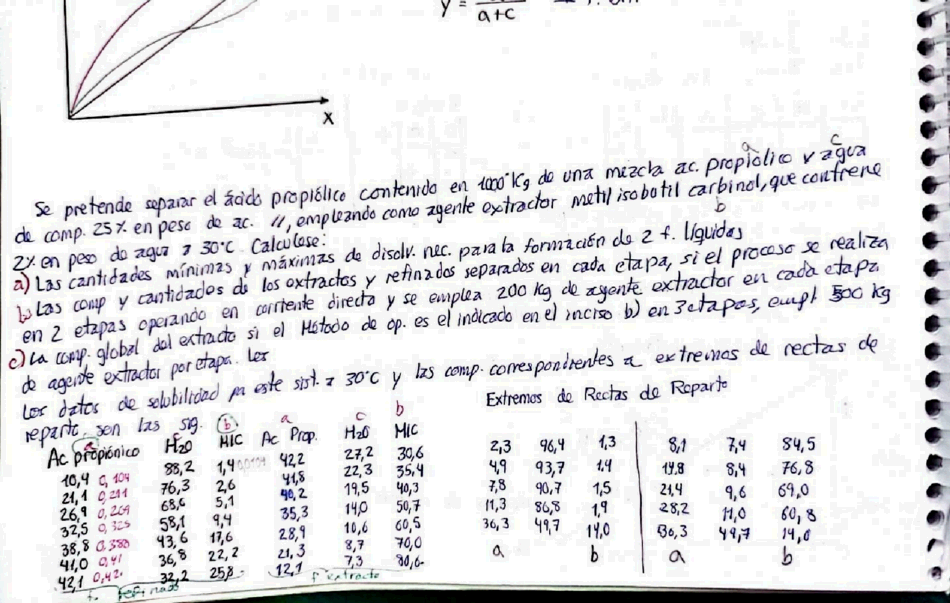 y =
a+c
x
a c
Se pretende separar el ácido propiólico contenido en 1000 Kg de una mezcla ac. propiólico y agua
de comp. 25% en peso de ac. //, empleando como agente extractor metil isobutil carbinol, que contiene
b
2% en peso de agua a 30°C. Calculese:
a) Las cantidades mínimas y máximas de disolv. nec. para la formación de 2 f. líquidas
b) Las comp y cantidades de los extractos y refinados separados en cada etapa, si el proceso se realiza
en 2 etapas operando en corriente directa y se emplea 200 Kg de agente extractor en cada etapa
c) La comp. global del extracto si el Método de op. es el indicado en el inciso b) en 3 etapas, empl 500 Kg
de agente extractor por etapa. Los
Los datos de solubilidad pa este sist. a 30°C y las comp. correspondientes a extremos de rectas de
reparto son las sig.
Extremos de Rectas de Reparto
a c b a c b
Ac propiónico H2O MIC Ac Prop. H2O MIC
10,4 0,104 88,2 1,4 42,2 27,2 30,6
21,1 0,211 76,3 2,6 41,8 22,3 35,4
26,9 0,269 68,6 5,1 40,2 19,5 40,3
32,5 0,325 58,1 9,4 35,3 14,0 50,7
38,8 0,388 43,6 17,6 28,9 10,6 60,5
41,0 0,41 36,8 22,2 21,3 8,7 70,0
42,1 0,42 32,2 25,8 12,1 7,3 80,6
f. refinado f extracto
2,3 96,4 1,3 8,1 7,4 84,5
4,9 93,7 1,4 14,8 8,4 76,8
7,8 90,7 1,5 21,4 9,6 69,0
11,3 86,8 1,9 28,2 11,0 60,8
36,3 49,7 14,0 36,3 49,7 14,0
a b a b